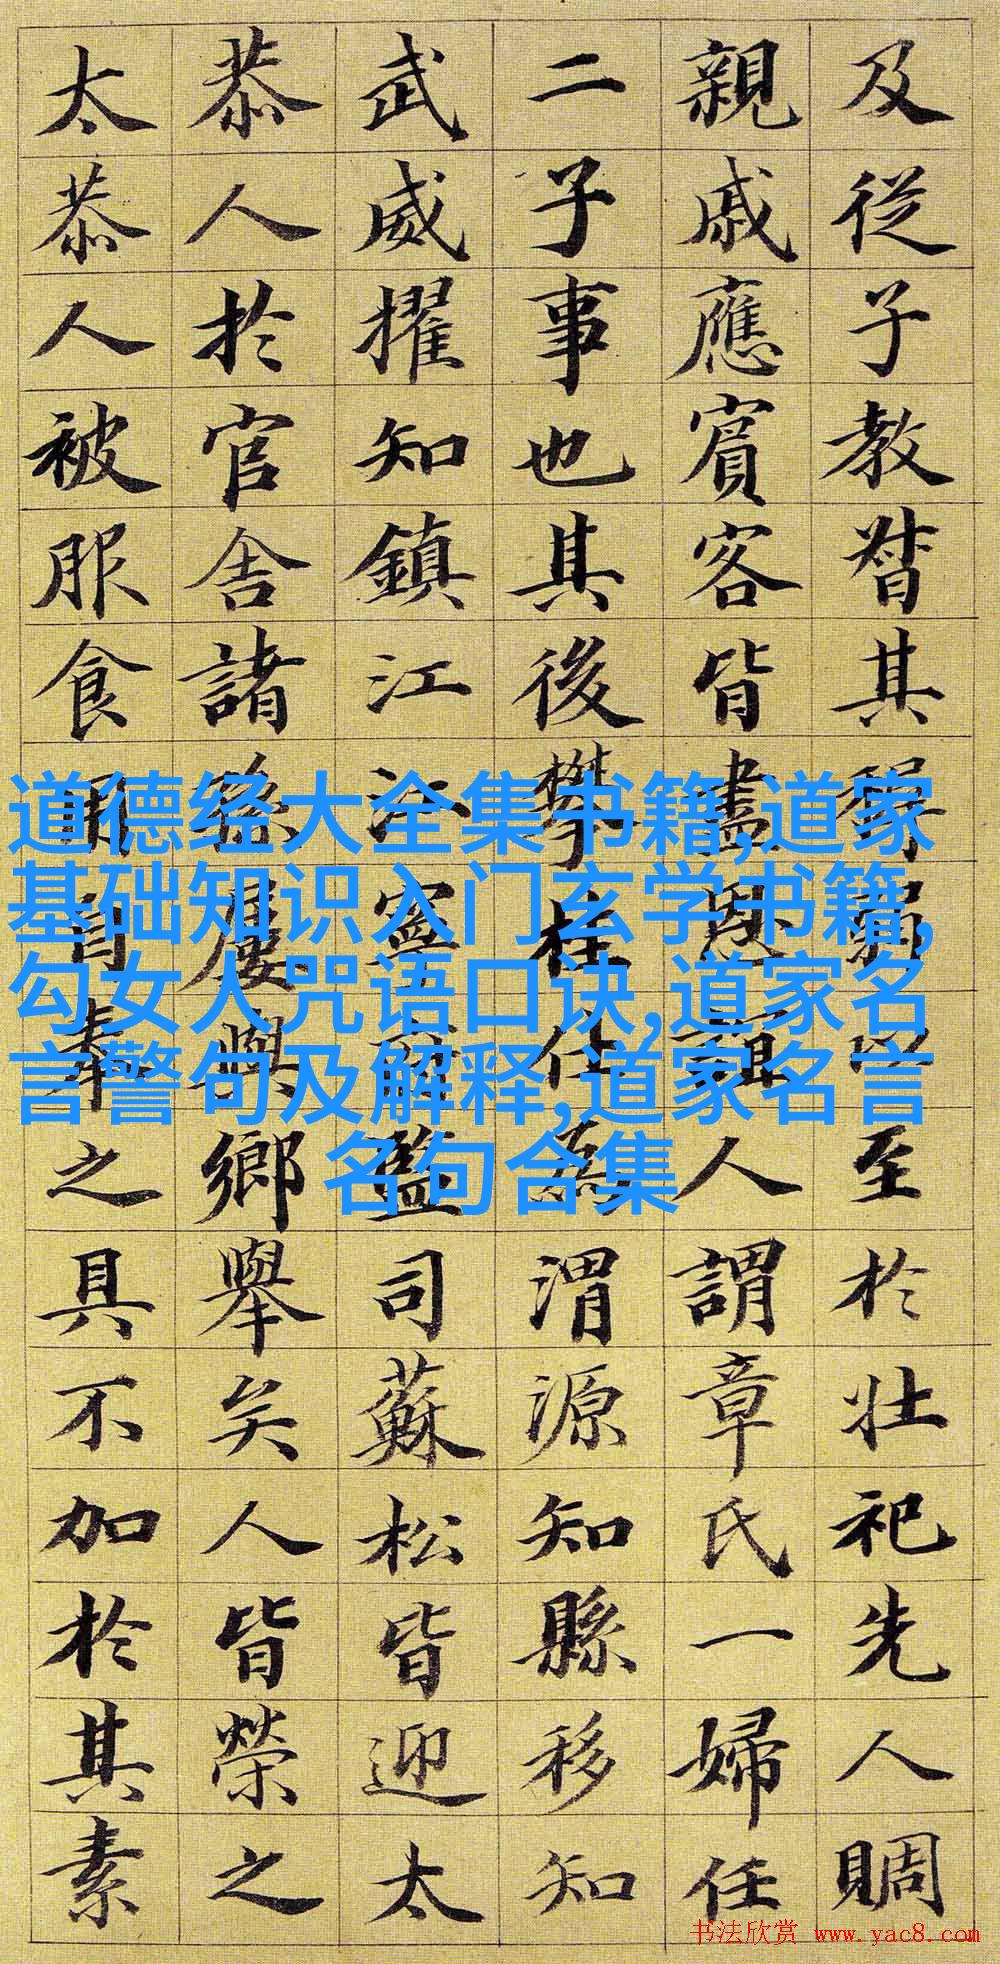 及從子教督其至於壯祀先人賙
親戚應賓客皆盡恩人謂章氏一婦任
二子事也其後攀桂仕為渭源知縣移知
武威擢知鎮江江寧監司蘇松皆迎太
恭人於官舍諸孫屢與鄉舉矣人皆榮之
太恭人被服食用自奉之具不加於其素
道德经大全集书籍,道家
基础知识入门玄学书籍,
勾女人咒语口诀,道家名
言警句及解释,道家名言
名句合集
书法欣赏 www.yac8.com